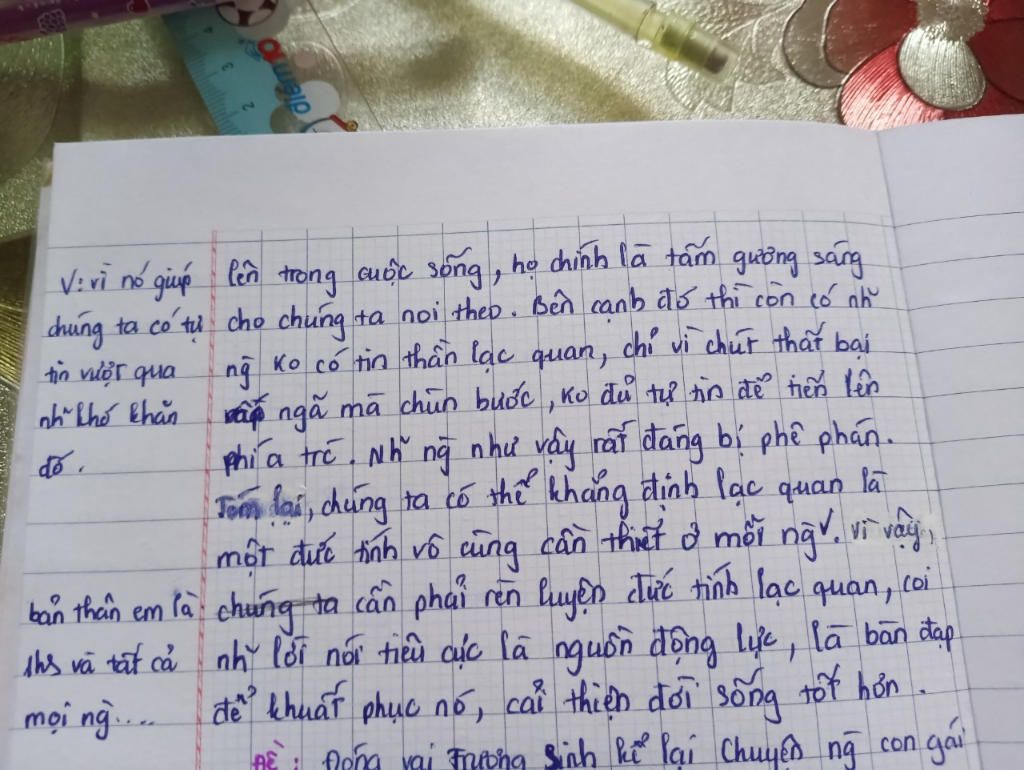 điểm
V: vì nó giúp
chúng ta có tự
tin vượt qua
nh~ khó khăn
đó.
bản thân em là
1hs và tất cả
mọi ng̀....
lên trong cuộc sống, họ chính là tấm gương sáng
cho chúng ta noi theo. Bên cạnh đó thì còn có nh~
ng̀ ko có tin thần lạc quan, chỉ vì chút thất bại
ngã mà chùn bước, ko đủ tự tin để tiến lên
phía trc. Nh~ ng̀ như vậy rất đáng bị phê phán.
Tóm lại, chúng ta có thể khẳng định lạc quan là
một đức tính vô cùng cần thiết ở mỗi ng̀. vì vậy,
chúng ta cần phải rèn luyện đức tính lạc quan, coi
nh~ lời nói tiêu cực là nguồn động lực, là bàn đạp
để khuất phục nó, cải thiện đời sống tốt hơn.
Đề: Đóng vai Trương Sinh kể lại Chuyện ng̀ con gái